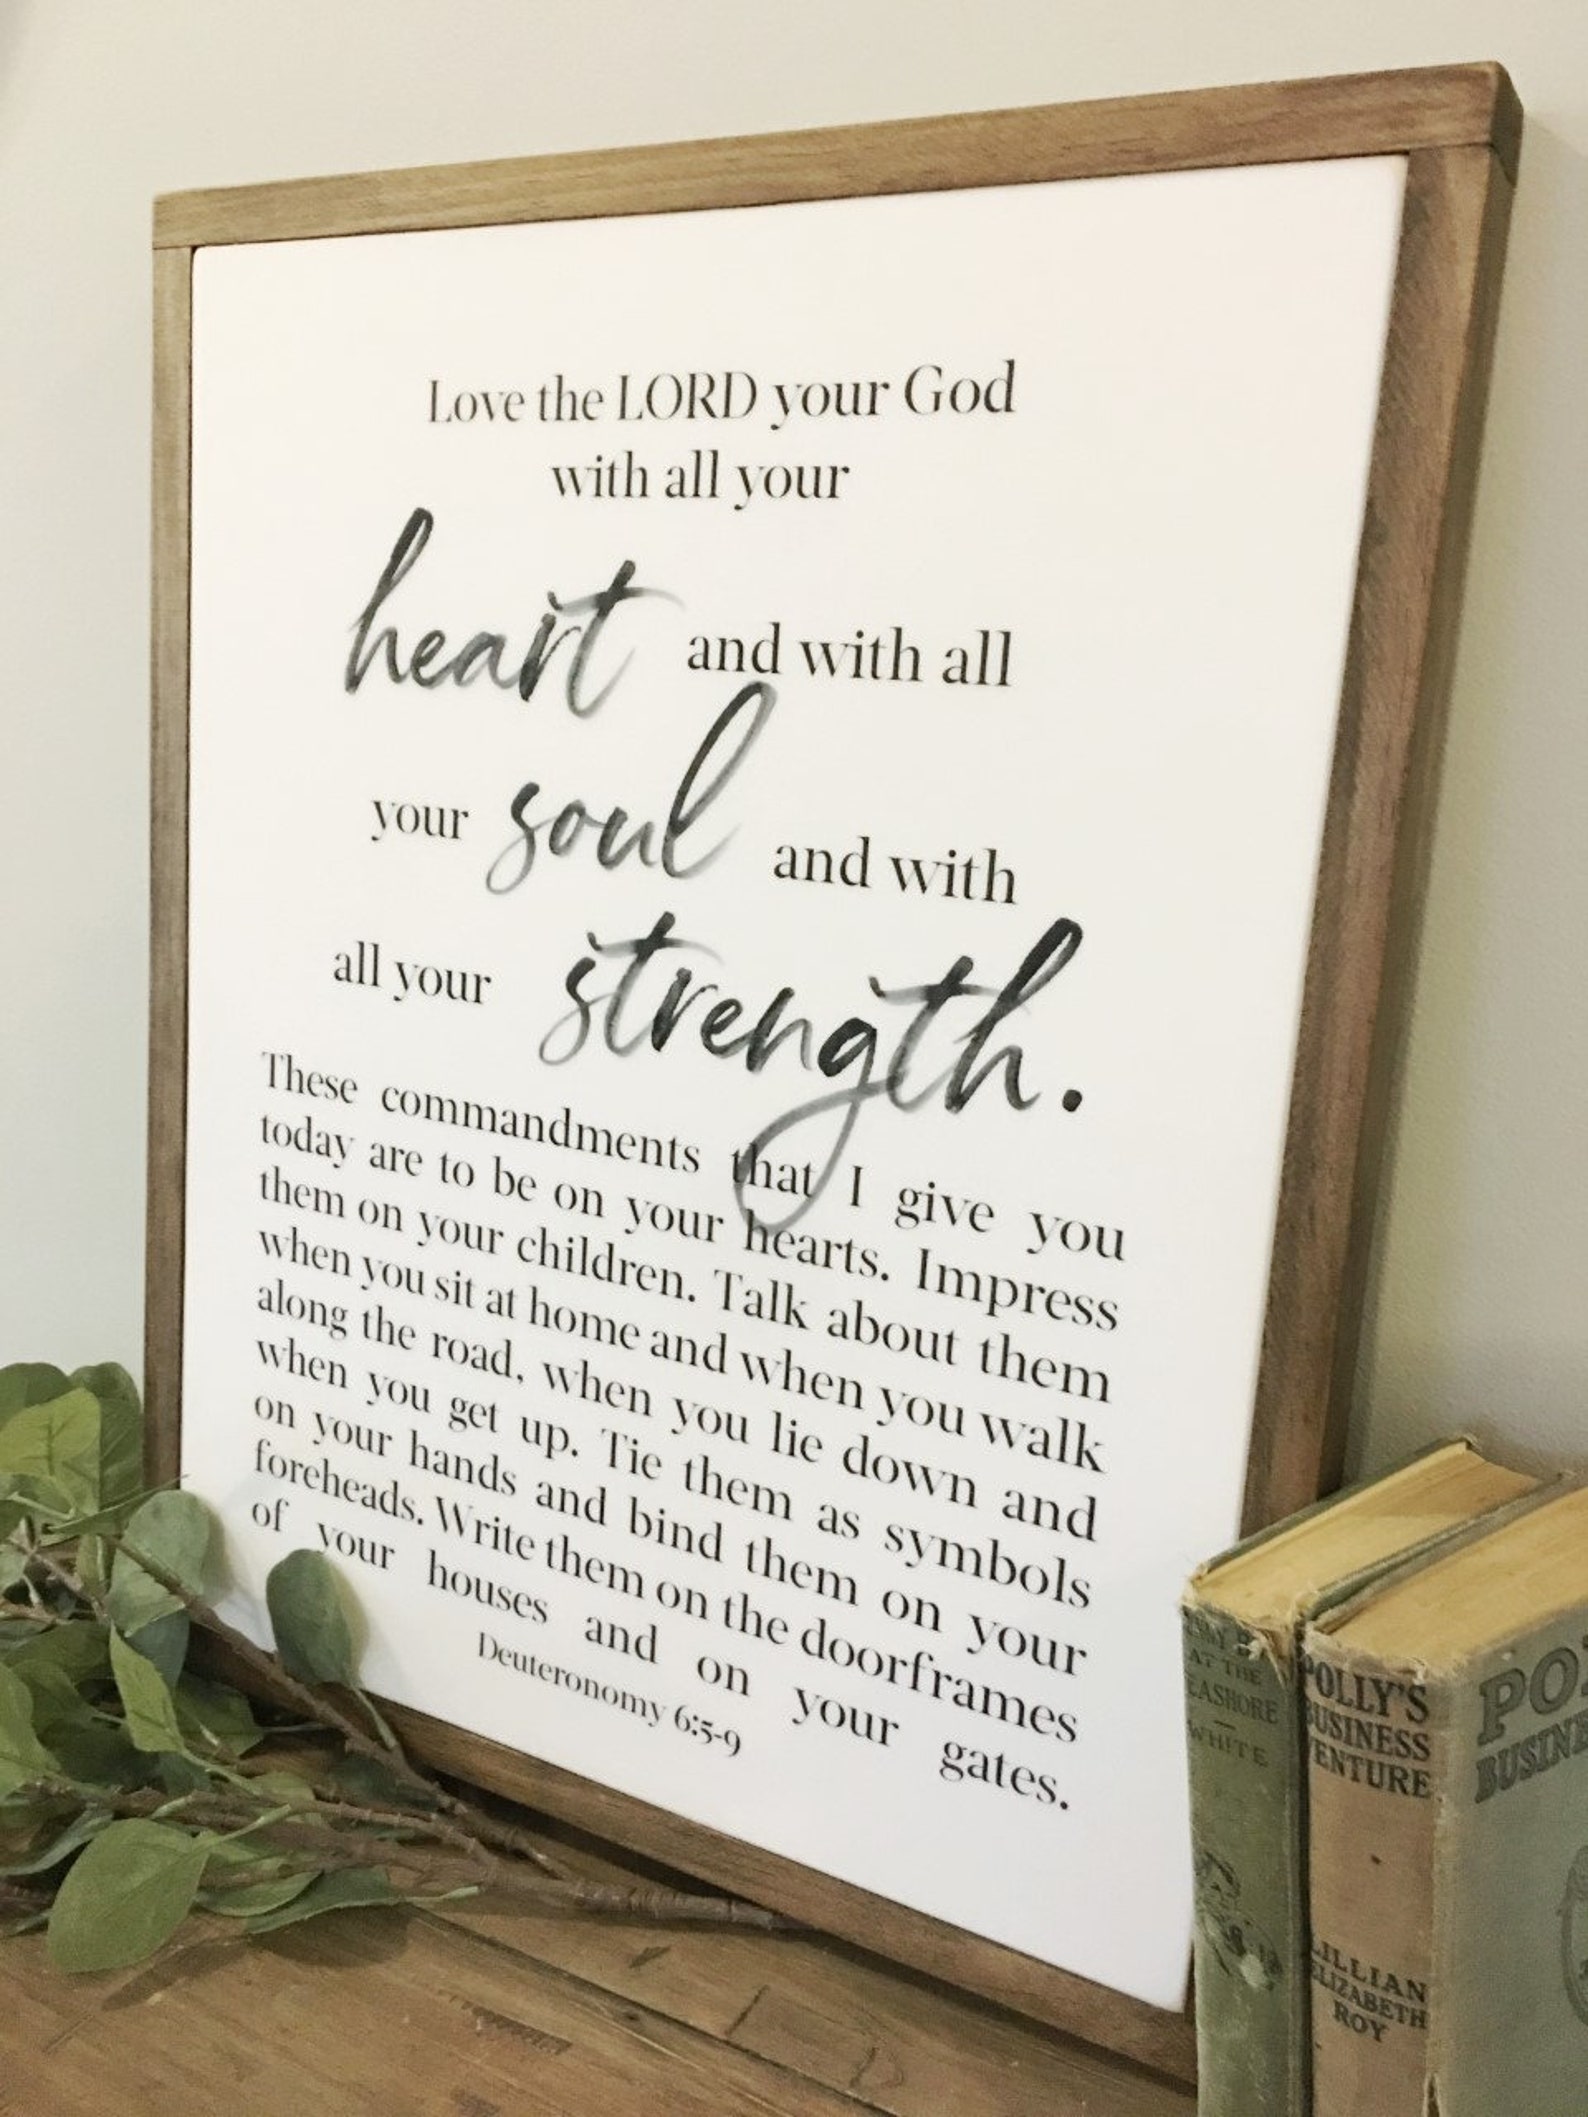 Love the LORD your God
with all your
heart and with all
your soul and with
all your strength.
These commandments that I give you
today are to be on your hearts. Impress
them on your children. Talk about them
when you sit at home and when you walk
along the road, when you lie down and
when you get up. Tie them as symbols
on your hands and bind them on your
foreheads. Write them on the doorframes
of your houses and on your gates.
Deuteronomy 6:5-9
AT THE
EASHORE
WHITE
POLLY'S
BUSINESS
VENTURE
LILLIAN
ELIZABETH
ROY
PO
BUSINE